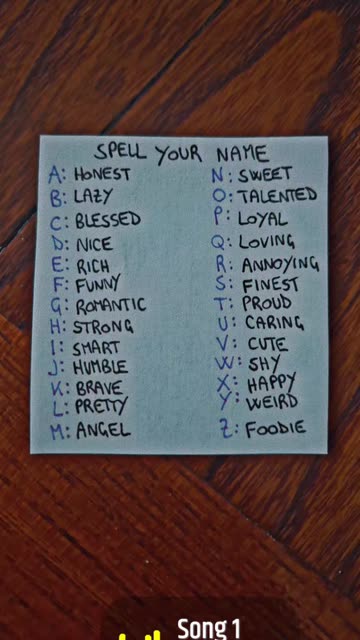 SPELL YOUR NAME
A: HONEST
B: LAZY
C: BLESSED
D: NICE
E: RICH
F: FUNNY
G: ROMANTIC
H: STRONG
I: SMART
J: HUMBLE
K: BRAVE
L: PRETTY
M: ANGEL
N: SWEET
O: TALENTED
P: LOYAL
Q: LOVING
R: ANNOYING
S: FINEST
T: PROUD
U: CARING
V: CUTE
W: SHY
X: HAPPY
Y: WEIRD
Z: FOODIE
Song 1